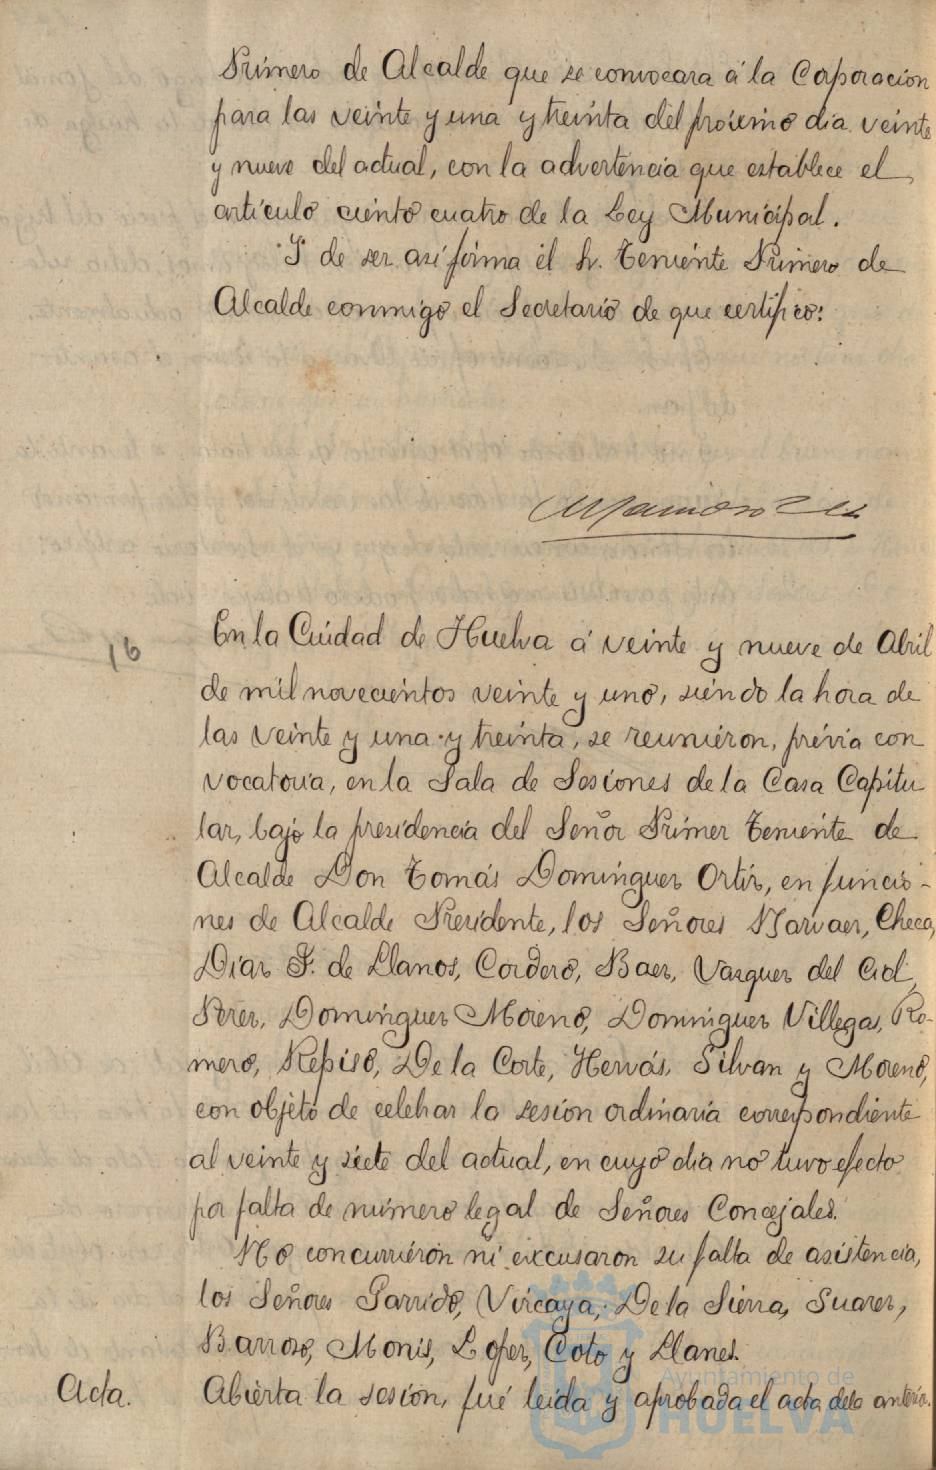 Primero de Alcalde que se convocara á la Corporacion
para las veinte y una y treinta del próximo dia veinte
y nueve del actual, con la advertencia que establece el
articulo ciento cuatro de la Ley Municipal.
Y de ser asi firma el Sr. Teniente Primero de
Alcalde conmigo el Secretario de que certifico:
16
En la Ciudad de Huelva á veinte y nueve de Abril
de mil novecientos veinte y uno, siendo la hora de
las veinte y una y treinta, se reunieron, prévia con
vocatoria, en la Sala de Sesiones de la Casa Capitu
lar, bajo la presidencia del Señor Primer Teniente de
Alcalde Don Tomás Dominguez Ortiz, en funcio-
nes de Alcalde Presidente, los Señores Narvaez, Checa,
Diaz F. de Llanos, Cordero, Baez, Vazquez del Cid,
Perez, Dominguez Moreno, Dominguez Villegas, Ro-
mero, Repiso, De la Corte, Hervás, Silvan y Moreno,
con objeto de celebrar la sesion ordinaria correspondiente
al veinte y siete del actual, en cuyo dia no tuvo efecto
por falta de número legal de Señores Concejales.
No concurrieron ni excusaron su falta de asistencia,
los Señores Garrido, Vizcaya, De la Sierra, Suarez,
Barroso, Monis, Lopez, Coto y Llanes.
Acta.
Abierta la sesion, fué leida y aprobada el acta de la anterior.
Ayuntamiento de
HUELVA